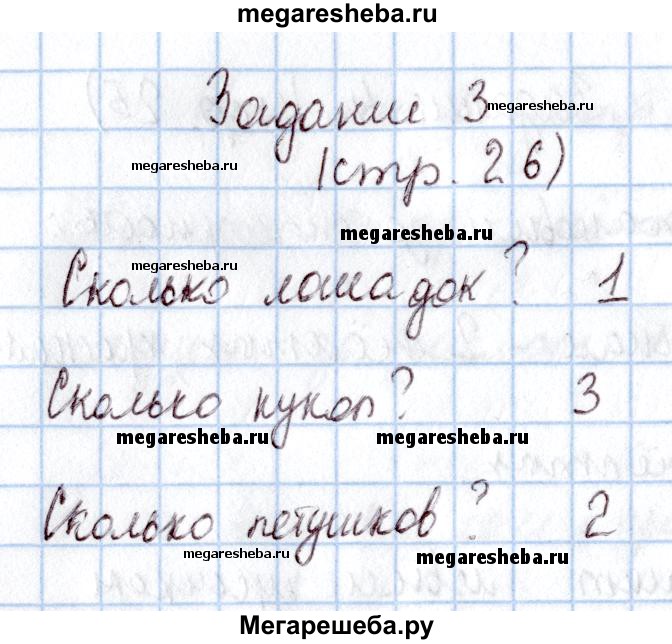 megaresheba.ru
Задание 3 megaresheba.ru
megaresheba.ru
(стр. 26)
megaresheba.ru
megaresheba.ru
Сколько лошадок? 1
Сколько кукол? 3
megaresheba.ru megaresheba.ru
Сколько петушков? 2
megaresheba.ru megaresheba.ru
Мегарешеба.ру